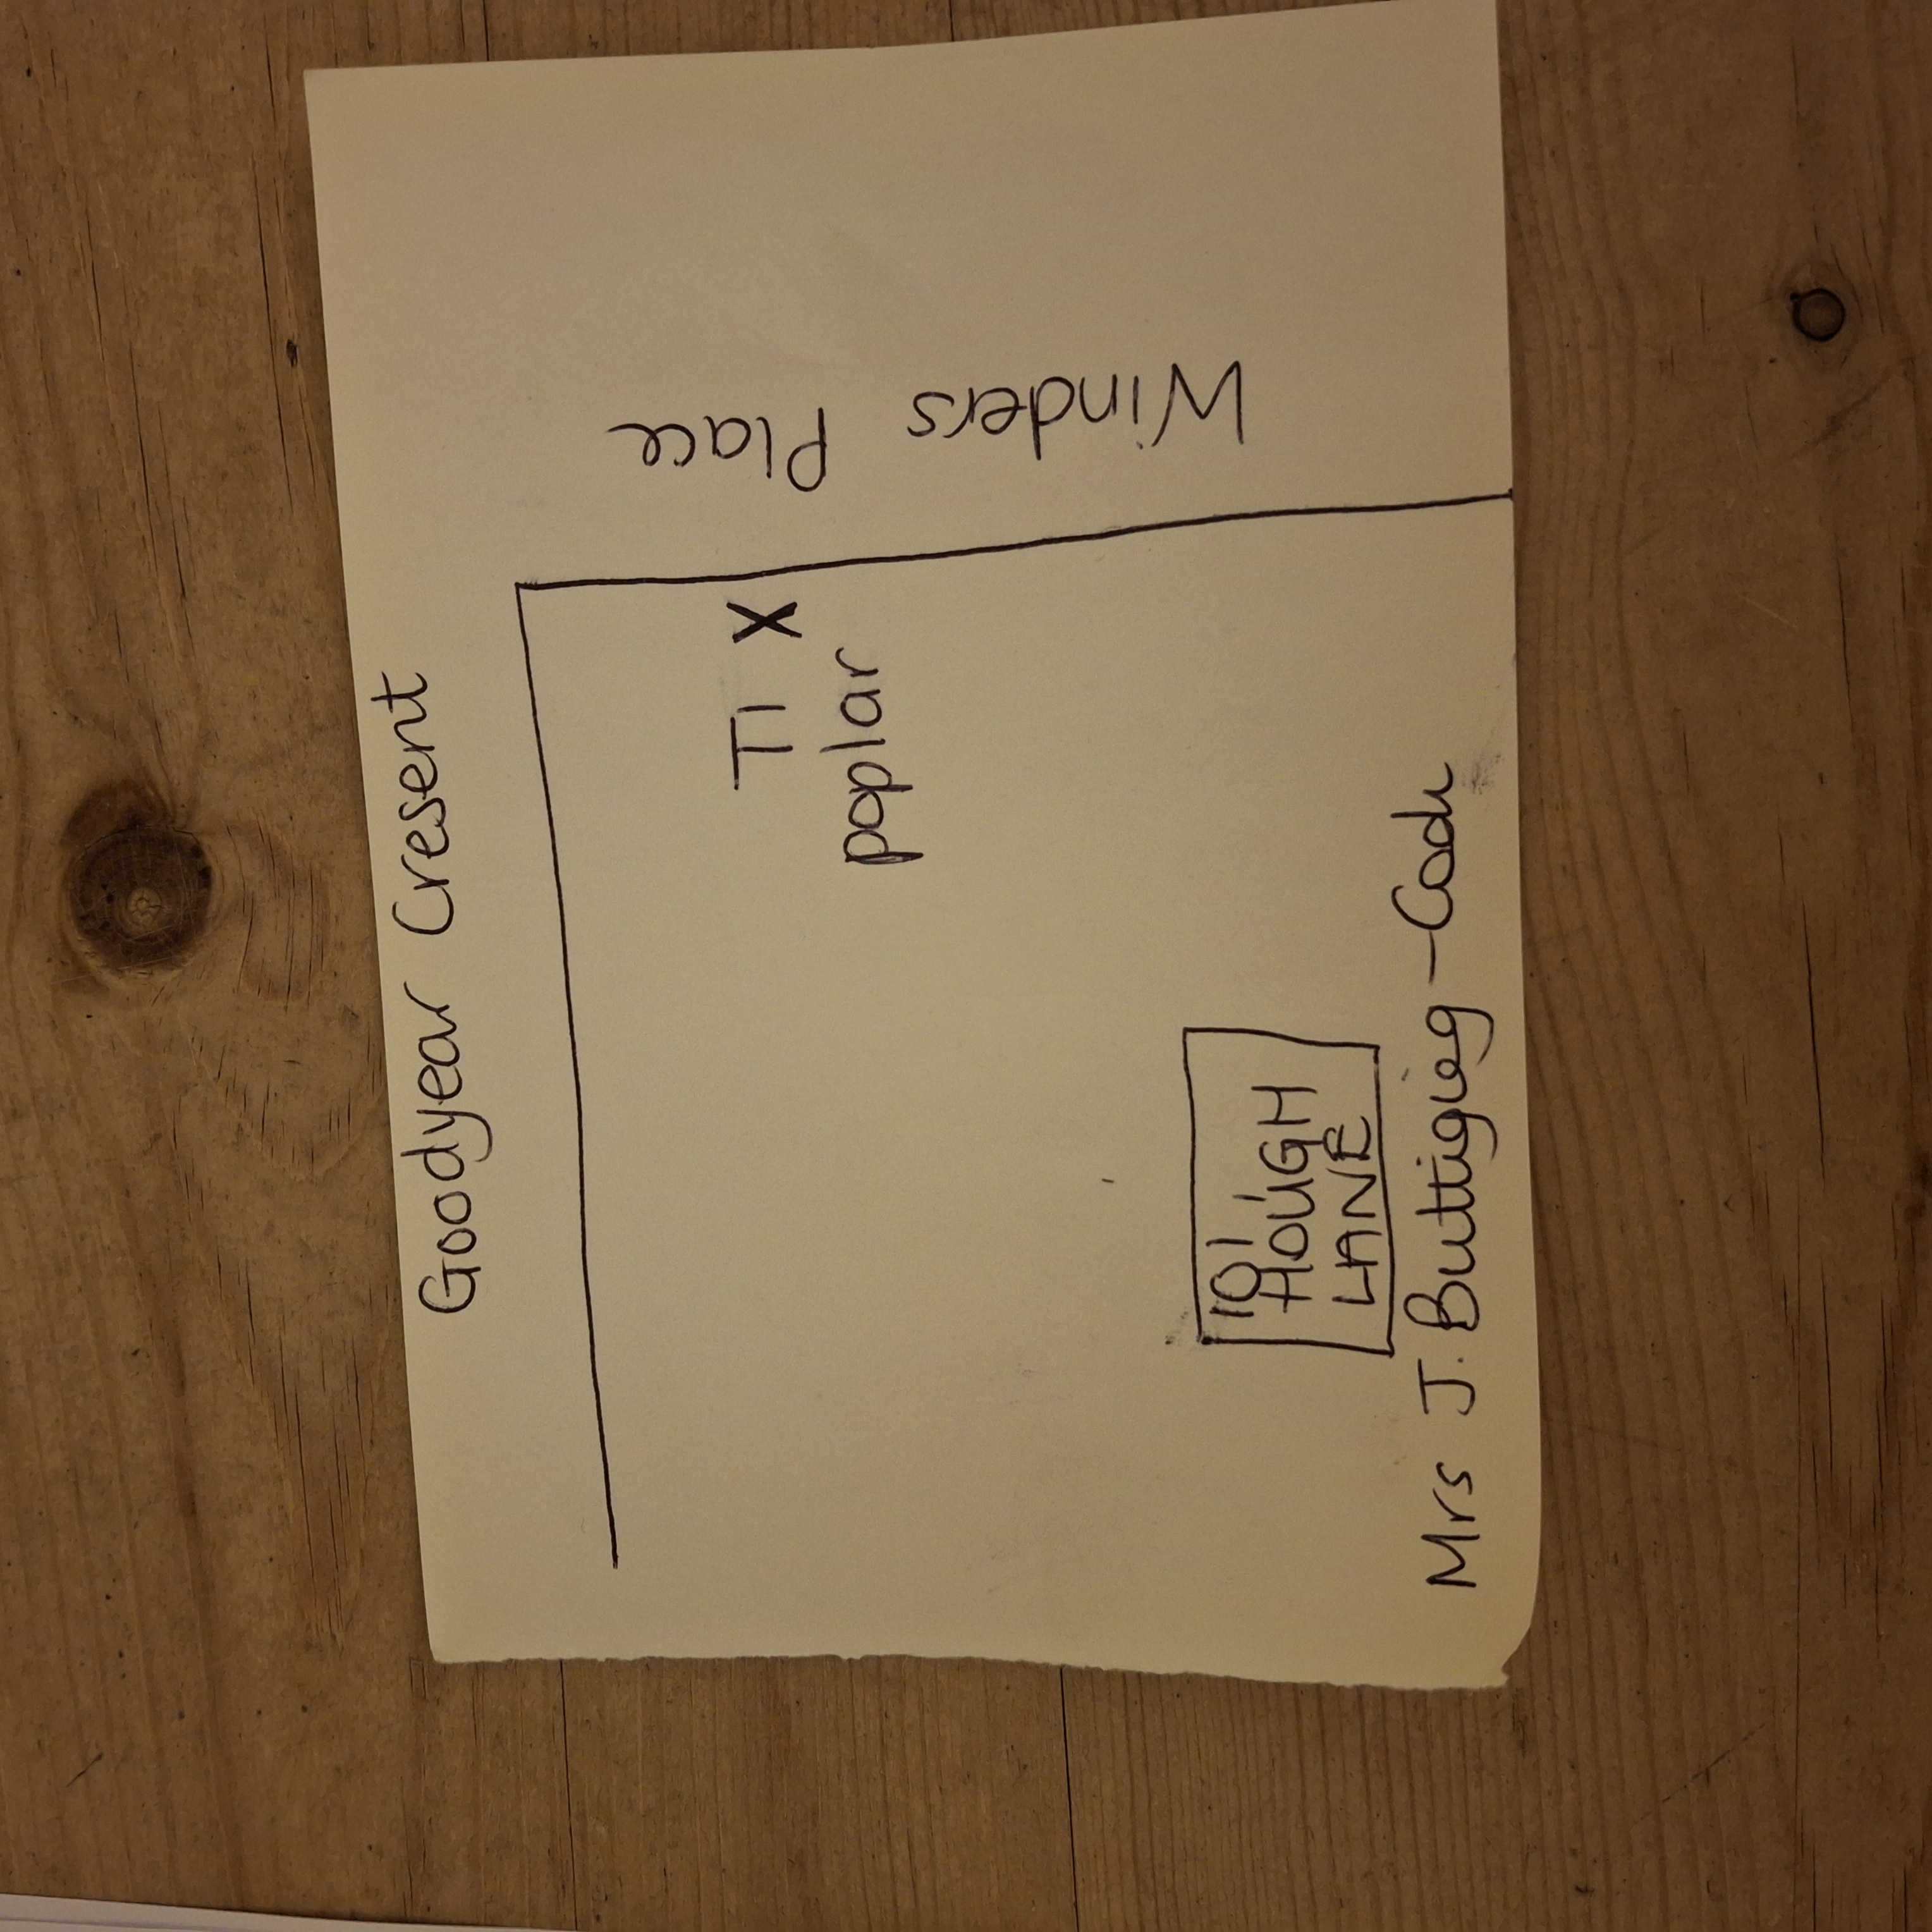 Goodyear Cresent
Winders Place
T1 X
poplar
101
HOUGH
LANE
Mrs J. Buttigieg - Cook